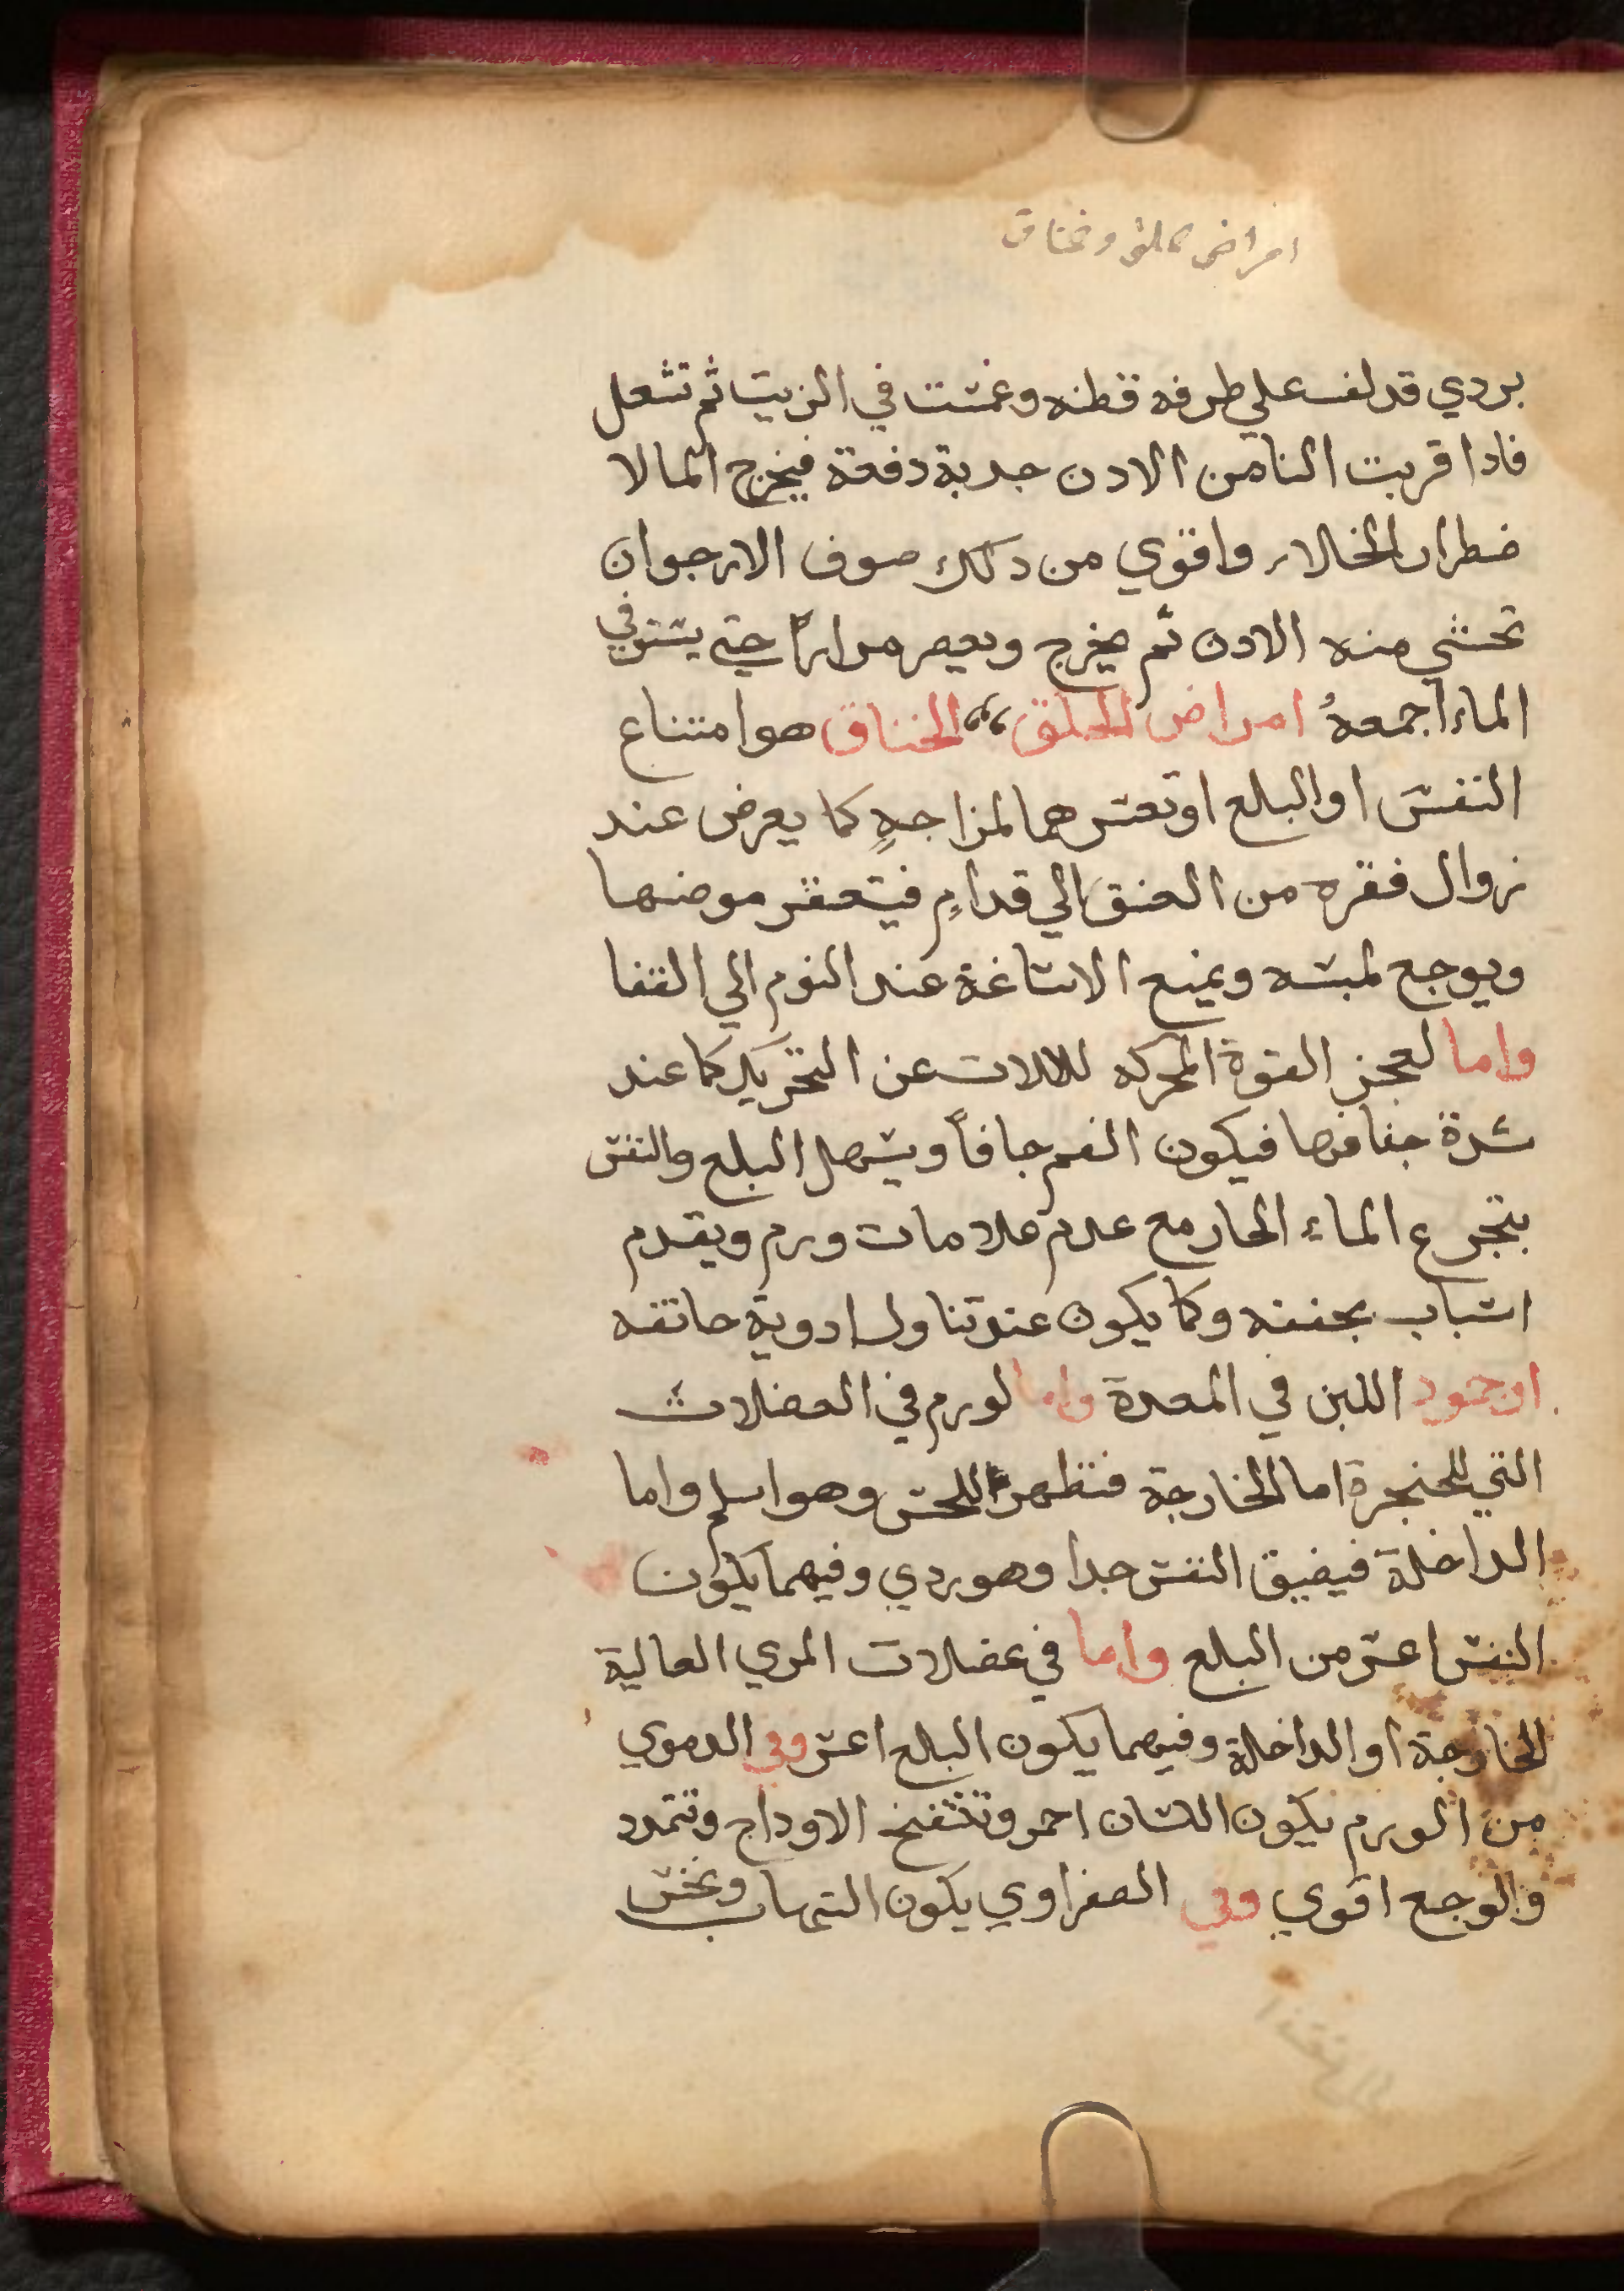 امراض حلق وخناق
بردي قد لف علي طرفه قطنه وغمست في الزيت ثم تشعل
فادا قربت النا من الادن جدبة دفعة فيخرج الما لا
ضطرار الخلار واقوي من دلك صوف الارجوان
تحشي منه الادن ثم يخرج ويعصر مرارًا حتي يستوفي
الماء اجمعهُ امراض الحلق الخناق هو امتناع
النفس او البلع او تعسرهما لمزاجهٍ كما يعرض عند
زوال فقره من العنق الي قدامٍ فيتعقر موضعها
ويوجع لمسه ويمنع الاساغة عند النوم الي القفا
واما لعجز القوة المحركه للالات عن التحريك كما عند
شدة جفافها فيكون الفم جافاً ويسهل البلع والنفس
بتجرع الماء الحار مع عدم علامات ورم ويقدم
اسباب مجففه وكما يكون عند تناول ادوية خانقه
او جمود اللبن في المعدة واما لورم في العضلات
التي للحنجرة اما الخارجة فتظهر للحس وهو اسلم واما
الداخلة فيضيق النفس جدا وهو ردي وفيهما يكون
النفس اعسر من البلع واما في عضلات المري العالية
الخارجة او الداخلة وفيهما يكون البلع اعسر وفي الدموي
من الورم يكون اللسان احمر وتنتفخ الاوداج وتتمدد
والوجع اقوي وفي الصفراوي يكون التهاب ونخس